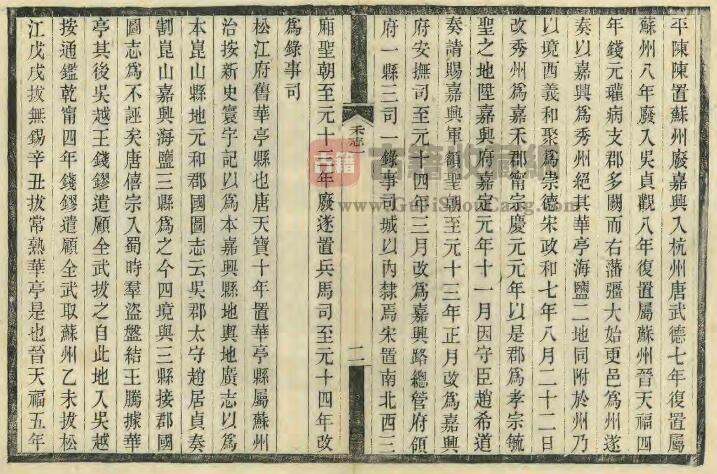 平陳陳置蘇州廢嘉興入杭州唐武德七年復置屬
蘇州八年廢入吳貞觀八年復置屬蘇州晉天福四
年錢元瓘病支郡多闕而右藩彊大始更邑爲州遂
奏以嘉興爲秀州絕其華亭海鹽二地同附於州乃
以境西義和聚爲崇德宋政和七年八月二十二日
改秀州爲嘉禾郡甯宗慶元元年以是郡爲孝宗毓
聖之地陞嘉興府嘉定元年十一月因守臣趙希道
奏請賜嘉興軍額聖朝至元十三年正月改爲嘉興
府安撫司至元十四年三月改爲嘉興路總管府領
府一縣三司一錄事司城以内隸焉宋置南北西三
禾志
二
廂聖朝至元十三年廢遂置兵馬司至元十四年改
爲錄事司
松江府舊華亭縣也唐天寶十年置華亭縣屬蘇州
治按新史寰宇記以爲本嘉興縣地輿地廣志以爲
本崑山縣地元和郡國圖志云吳郡太守趙居貞奏
割崑山嘉興海鹽三縣爲之今四境與三縣接郡國
圖志爲不誣矣唐僖宗入蜀時羣盜盤結王騰據華
亭其後吳越王錢鏐遣顧全武拔之自此地入吳越
按通鑑乾甯四年錢鏐遣顧全武取蘇州乙未拔松
江戊戌拔無錫辛丑拔常熟華亭是也晉天福五年
古籍
古籍收藏網
www.GuJiShouCang.com